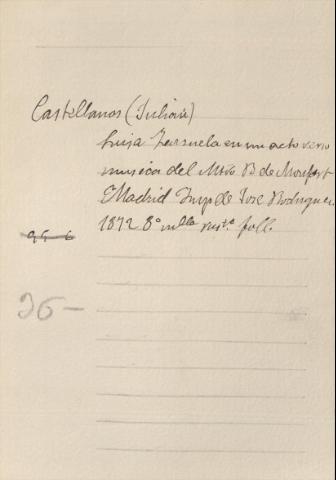 Castellanos (Julián)
Luisa Zarzuela en un acto verso
musica del Mtro B. de Monfort
Madrid Imp de Jose Rodriguez
1872 8º mlla rust.ª foll.
96-6
36-